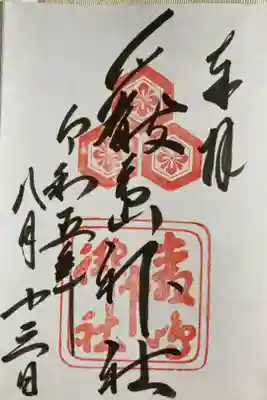 奉拝
嚴島神社
令和五年
八月十三日
嚴嶋
神社